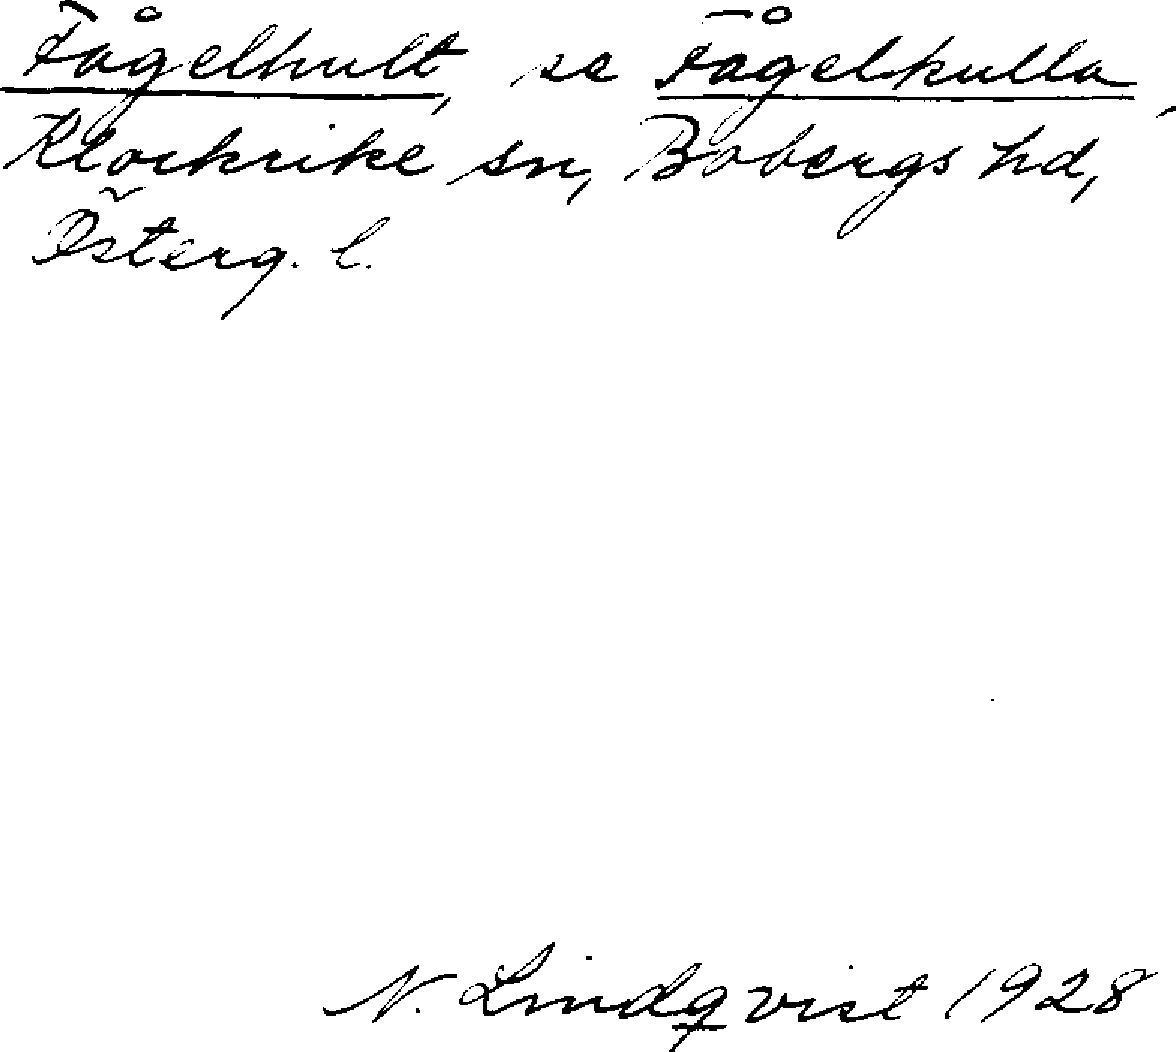 Fågelhult, se Fågelkulla,
Klockrike sn, Bobergs hd,
Österg. l.
N. Lindqvist 1928